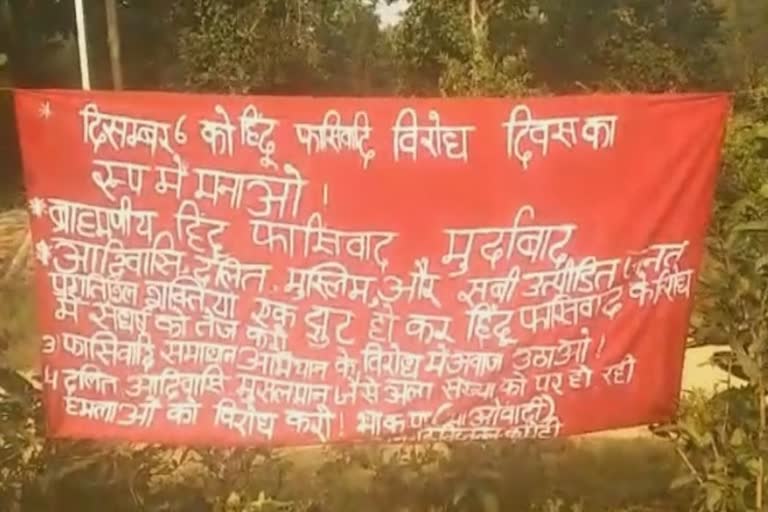 * दिसम्बर 6 को हिंदू फासिवादि विरोध दिवस का
रूप में मनाओ !
* ब्राह्मणीय हिंदू फासिवाद मुर्दाबाद
* आदिवासि, दलित, मुस्लिम, और सबी उत्पीडित
शक्तिया एक जुट हो कर हिंदू फासिवाद के विरोध
में संघर्ष को तेज करो
3 फासिवादि समाधान अभियान के विरोध में अवाज उठाओ !
4 दलित आदिवासि मुसलमान जैसे अल्प संख्या को पर हो रही
हमलाओं को विरोध करो ! भाकपा (माओवादी)
कमेटी